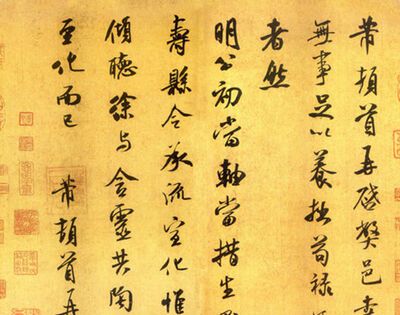 芾頓首再啓弊邑幸
無事足以養拙苟祿
者然
明公初當軸當措生
壽縣令承流宣化惟
傾聽徐与含靈共陶
至化而已 芾頓首再